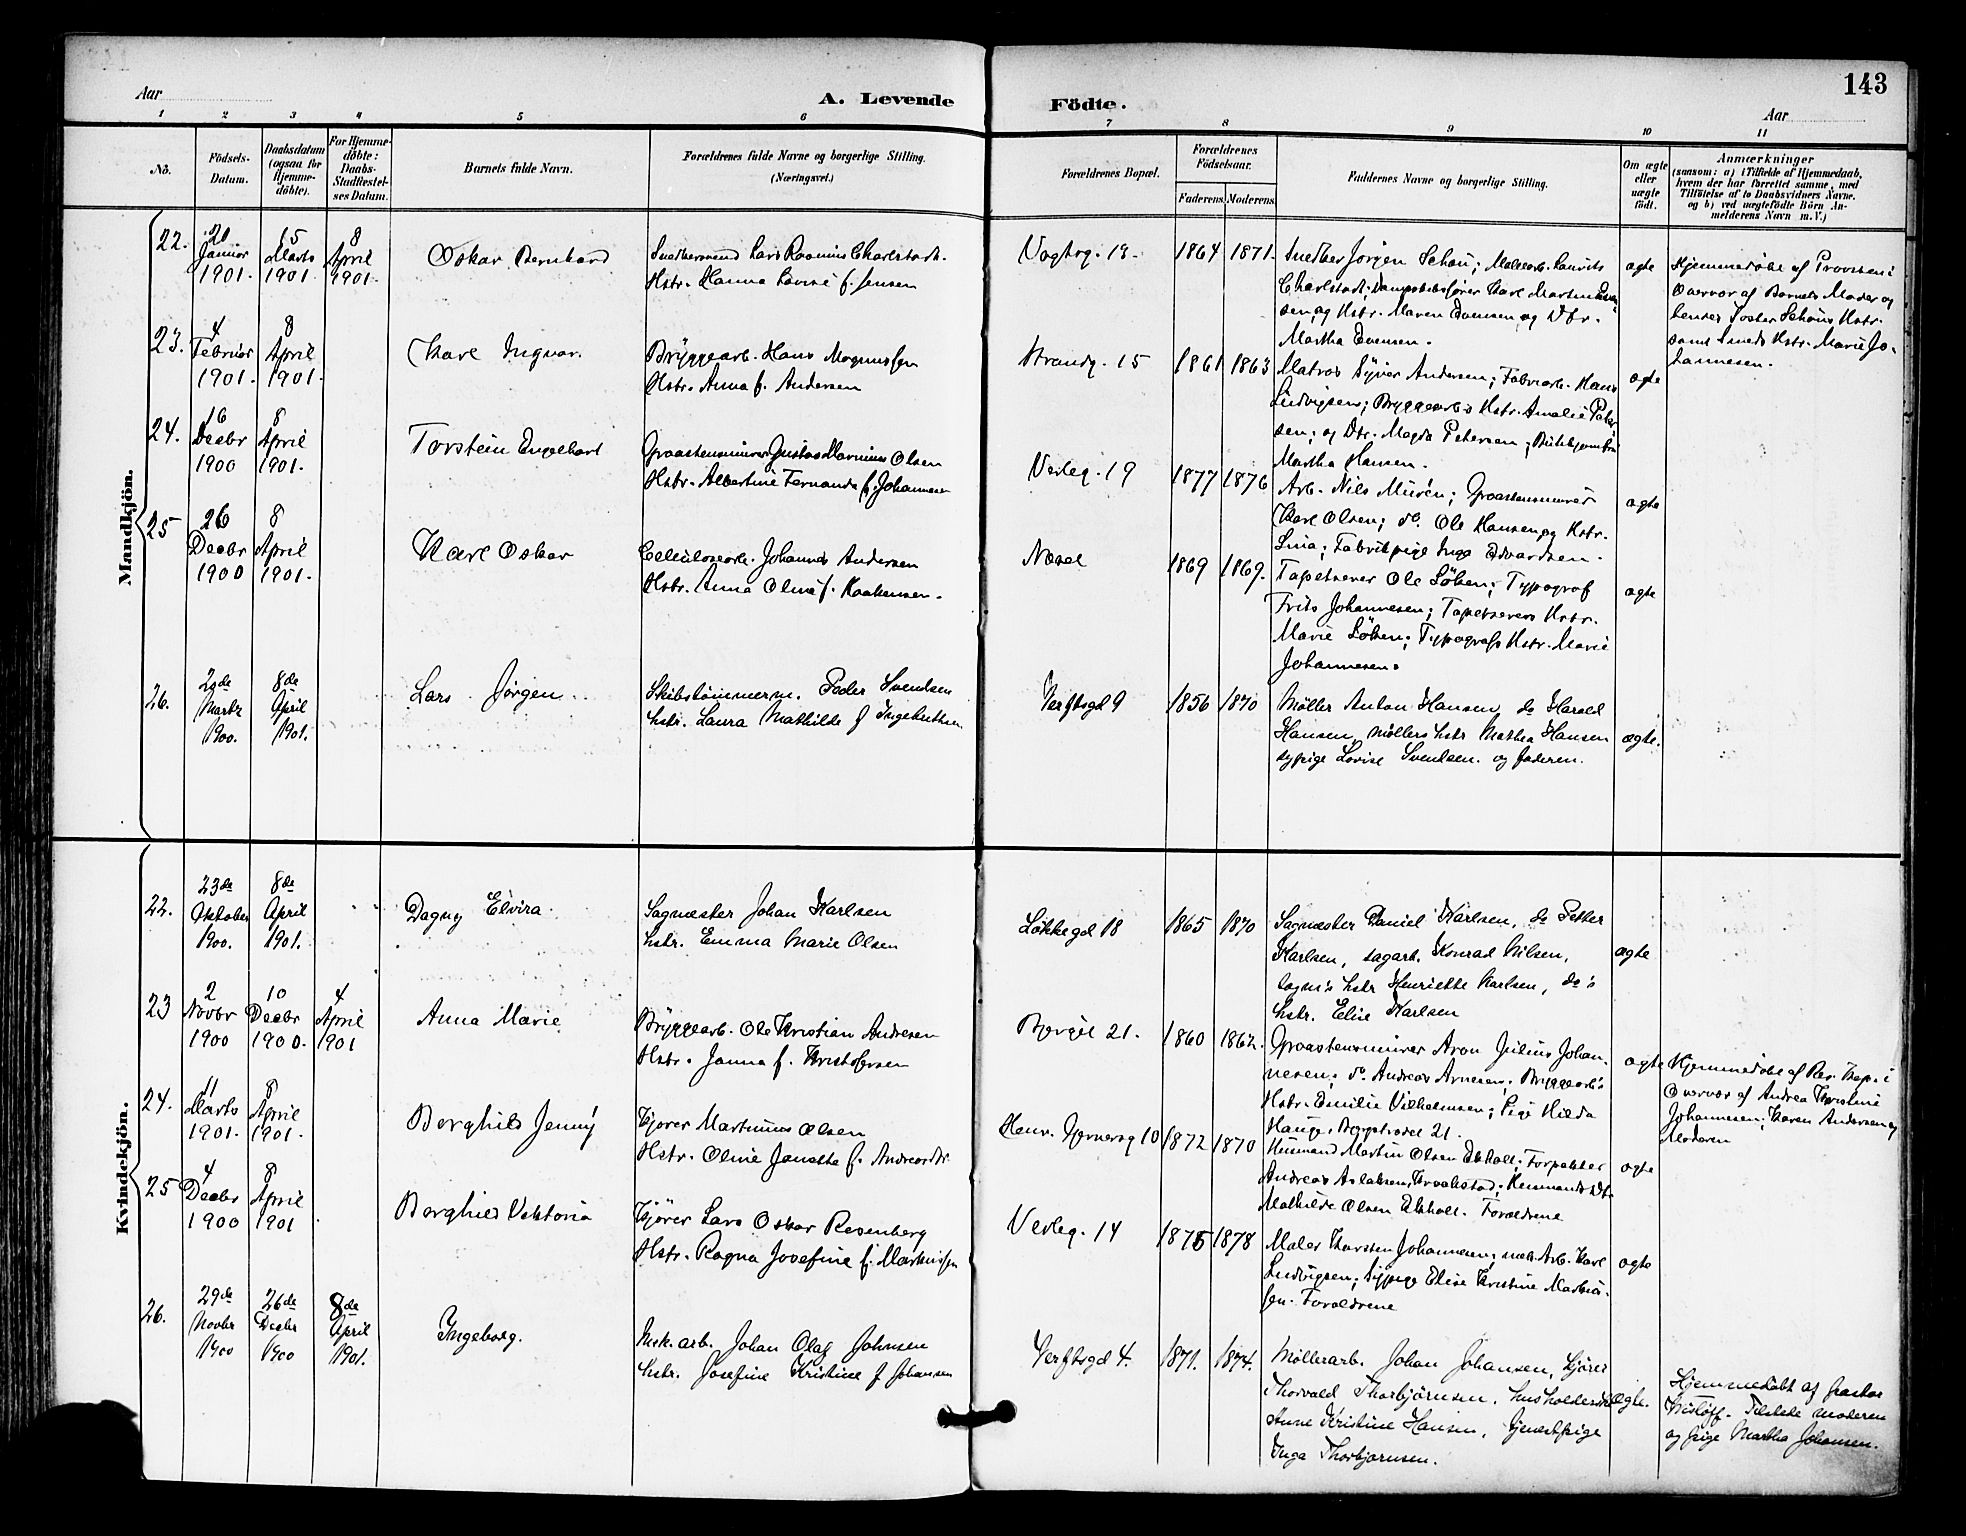 143
Aar
A. Levende Födte.
Aar
1 2 3 4 5 6 7 8 9 10 11
No.
Födsels-Datum.
Daabsdatum (ogsaa for Hjemme-döbte).
For Hjemme-döbte: Daabs-Stadfæstel-ses Datum.
Barnets fulde Navn.
Forældrenes fulde Navne og borgerlige Stilling.
(Næringsvei.)
Forældrenes Bopæl.
Forældrenes Födselsaar.
Faderens. Moderens.
Faddernes Navne og borgerlige Stilling.
Om ægte eller uægte födt.
Anmærkninger
(saasom: a) i Tilfælde af Hjemmedaab,
hvem der har forrettet samme, med
Tilföielse af to Daabsvidners Navne.
og b) ved uægtefödte Börn An-
melderens Navn m. V.)
Mandkjön.
22.
Januar 1901.
15 Marts 1901.
8 April 1901.
Oskar Bernhard
Lars Rasmus Charlstadt.
Hstr. Hanna Lovise f. Jensen
Vogtsg. 18.
1864 1871.
Snedker Jörgen Schou; Malerarb. Laurits
Charlstadt; Dampskibsförer Karl Martin
sen og Hstr. Maren Evensen og Dtr.
Martha Evensen.
ægte
Hjemmedöbt af Provsten i
Overvær af Barnets Moder og
Schous Hstr.
samt Smeds Hstr. Marie Jo-
hannesen.
23.
4 Februar 1901.
8 April 1901.
Karl Ingvar.
Bryggearb. Hans Magnussen
Hstr. Anna f. Andersen
Strandg. 15
1861 1863
Matros Syver Andersen; Fabrarb. Hans
Ludvigsen; Bryggearb's Hstr. Amalie Peter-
sen; og Dtr. Magda Petersen;
Martha Hansen.
ægte
24.
16 Decbr 1900
8 April 1901.
Torstein Engelhart
Graastensminer Gustav Marinius Olsen
Hstr. Albertine Fernanda f. Johannesen
Verleg. 19
1877 1876
Arb. Nils Murén; Graastensmurer
Karl Olsen; do. Ole Hansen og Hstr.
Lina; Fabrikpige Inga Edvardsen.
ægte
25
26 Decbr 1900
8 April 1901.
Karl Oskar
Cellulosearb. Johannes Andersen
Hstr. Anna Oline f. Haakensen.
Næset
1869 1869.
Tapetserer Ole Löken; Typograf
Frits Johannesen; Tapetserers Hstr.
Marie Löken; Typografs Hstr. Marie
Johannesen.
ægte
26.
Marts 1900.
8de April 1901.
Lars Jörgen
Skibstömmerm. Peder Svendsen
hstr. Laura Mathilde f Ingebretsen
Verftsgd 9
1856 1870
Møller Anton Hansen, do Harald
Hansen, møllers hstr Mathea Hansen
sypige Lovise Svendsen. og faderen.
ægte.
Kvindekjön.
22.
23de Oktober 1900.
8de April 1901.
Dagny Elvira.
Sagmester Johan Karlsen
hstr. Emma Marie Olsen
Løkkegd 18
1865 1870
Sagmester Daniel Karlsen, do Petter
Karlsen, sagarb. Konrad Nilsen,
sagm's hstr Henriette Karlsen, do's
hstr. Elise Karlsen
ægte
23
2 Novbr 1900
10 Decbr 1900.
4 April 1901
Anna Marie
Bryggearb. Ole Kristian Andresen
Hstr. Janna f. Kristofersen
21.
1860 1862.
Graastensmurer Aron Julius Johan-
nesen; do. Andreas Arnesen; Bryggearb's
Hstr. Emilie Vilhelmsen; Pige Hilda
Hauge, 21.
ægte
Hjemmedöbt af i
Overvær af Andrea Kristine
Johannesen; Karen Andersen og
Moderen
24.
11 Marts 1901.
8 April 1901.
Borghild Jenny
Kjörer Martinius Olsen
Hstr. Oline Janette f. Andreasdtr.
Henr. Gernersg 10
1872 1870
Husmand Martin Olsen Ekholt; Forpakter
Andreas Aslaksen, Kraakstad; Husmands Dt.
Mathilde Olsen Ekholt. Forældrene
ægte
25
4 Decbr 1900
8 April 1901
Borghild Viktoria
Kjörer Lars Oskar Rosenberg
Hstr. Ragna Josefine f. Martinsen
Verleg. 14
1875 1878
Maler Karsten Johannesen; Arb. Karl
Ludvigsen; Sypige Elise Kristine Martin-
sen. Forældrene
ægte
26.
29de Novbr 1900
26de Decbr 1900
8de April 1901.
Ingeborg.
Msk. arb. Johan Olaf Johnsen
hstr. Josefine Kristine f Johansen
Verftsgd 4.
1871. 1874.
Møllerarb. Johan Johansen, kjører
Thorvald Thorbjørnsen, husholderske
Anne Kristine Hansen, tjenestpige
Inga Thorbjørnsen.
ægte.
Hjemmedøbt af pastor
Tilstede moderen
og pige Martha Johansen.